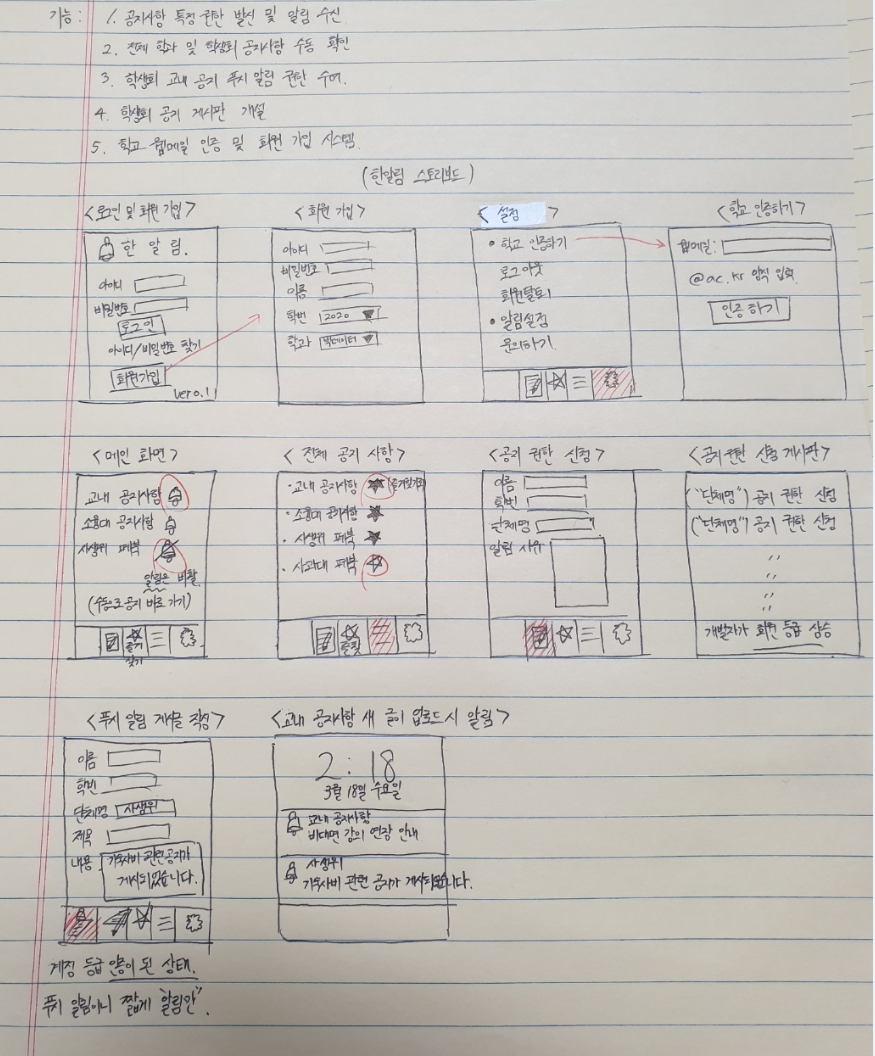 기능 : 1. 공지사항 특정 권한 발신 및 알림 수신
2. 전체 학과 및 학생회 공지사항 수동 확인
3. 학생회 교내 공지 푸시 알림 권한 수여.
4. 학생회 공지 게시판 개설
5. 학교 웹메일 인증 및 회원 가입 시스템.
(한알림 스토리보드)
<로그인 및 회원 가입>
한 알 림.
아이디
비밀번호
로그인
아이디/비밀번호 찾기
회원가입
ver 0.1
<회원 가입>
아이디
비밀번호
이름
학번 2020
학과 빅데이터
<설정>
• 학교 인증하기
로그아웃
회원탈퇴
• 알림설정
문의하기
<학교 인증하기>
웹메일:
@ac.kr 양식 입력
인증하기
<메인 화면>
교내 공지사항
소융대 공지사항
사생위 페북
알림은 비활
(수동으로 공지 바로 가기)
즐겨
찾기
<전체 공지 사항>
• 교내 공지사항 (즐겨찾기)
• 소융대 공지사항
• 사생위 페북
• 사과대 페북
즐찾
<공지 권한 신청>
이름
학번
단체명
알림 사유
<공지 권한 신청 게시판>
("단체명") 공지 권한 신청
("단체명") 공지 권한 신청
〃
〃
〃
개발자가 회원 등급 상승
<푸시 알림 게시물 작성>
이름
학번
단체명 사생위
제목
내용 기숙사비 관련 공지가
게시되었습니다.
계정 등급 인증이 된 상태.
푸시 알림이니 짧게 "알림만".
<교내 공지사항 새 글이 업로드 시 알림>
2:18
3월 18일 수요일
교내 공지사항
비대면 강의 연장 안내
사생위
기숙사비 관련 공지가 게시되었습니다.